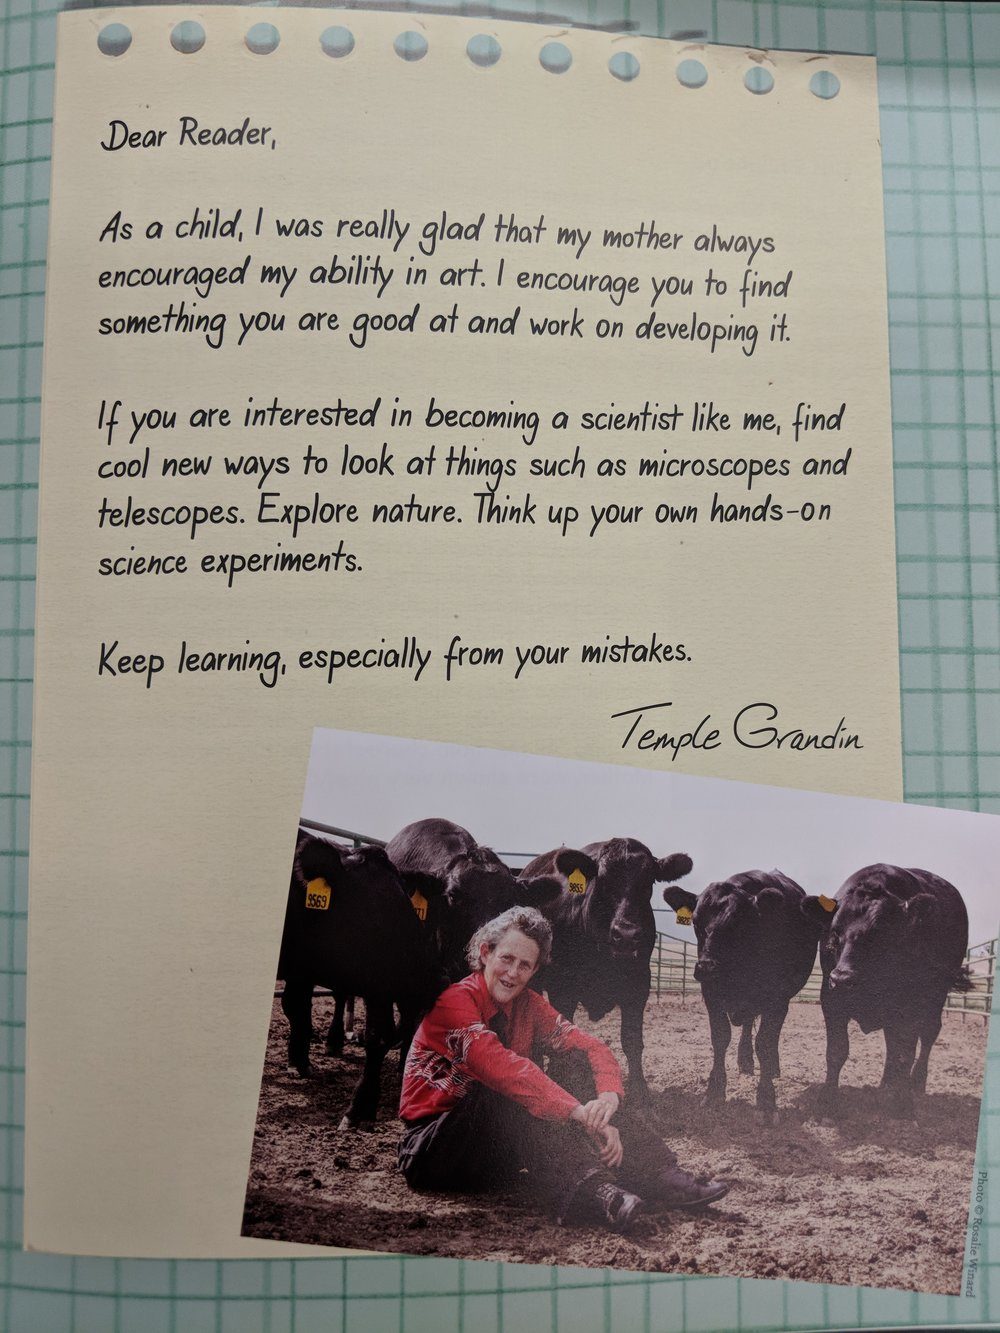 Dear Reader,
As a child, I was really glad that my mother always
encouraged my ability in art. I encourage you to find
something you are good at and work on developing it.
If you are interested in becoming a scientist like me, find
cool new ways to look at things such as microscopes and
telescopes. Explore nature. Think up your own hands-on
science experiments.
Keep learning, especially from your mistakes.
Temple Grandin
9569
9855
Photo © Rosalie Winard